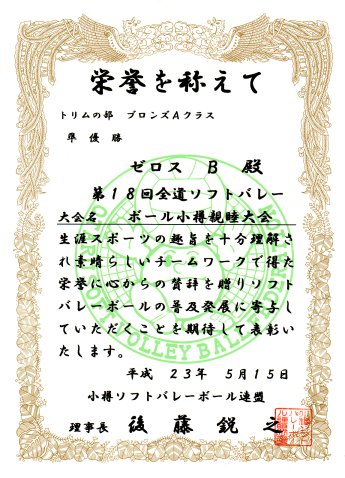 栄誉を称えて
トリムの部　ブロンズAクラス
準優勝
ゼロス　B　殿
第18回全道ソフトバレー
大会名　ボール小樽親睦大会
生涯スポーツの趣旨を十分理解さ
れ素晴らしいチームワークで得た
栄誉に心からの賛辞を贈りソフト
バレーボールの普及発展に寄与し
ていただくことを期待して表彰い
たします。
平成　23年　5月15日
小樽ソフトバレーボール連盟
理事長　後藤　鋭之